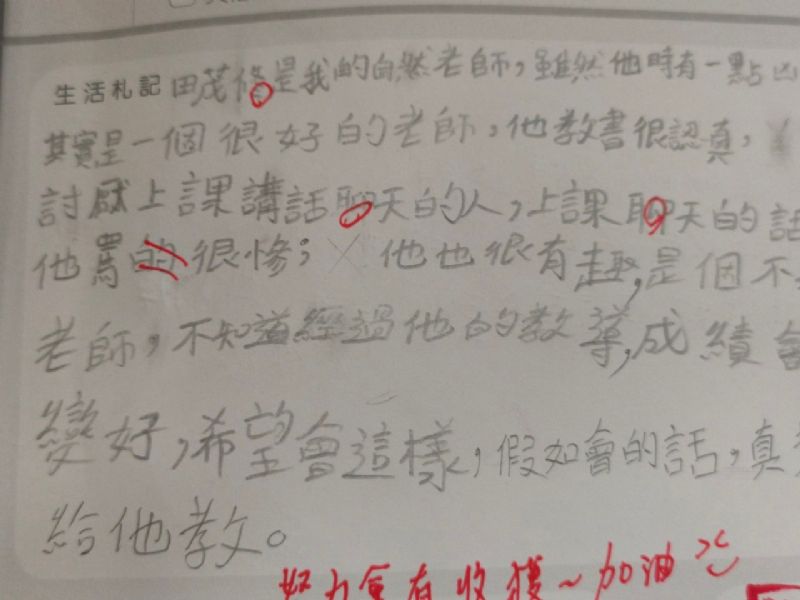 生活札記 田茂修是我的自然老師，雖然他時有一點凶
其實是一個很好的老師，他教書很認真，
討厭上課講話聊天的人，上課聊天的話
他罵的很慘；他也很有趣，是個不
老師，不知道經過他的教導，成績會
變好，希望會這樣，假如會的話，真
給他教。
努力會有收穫~加油